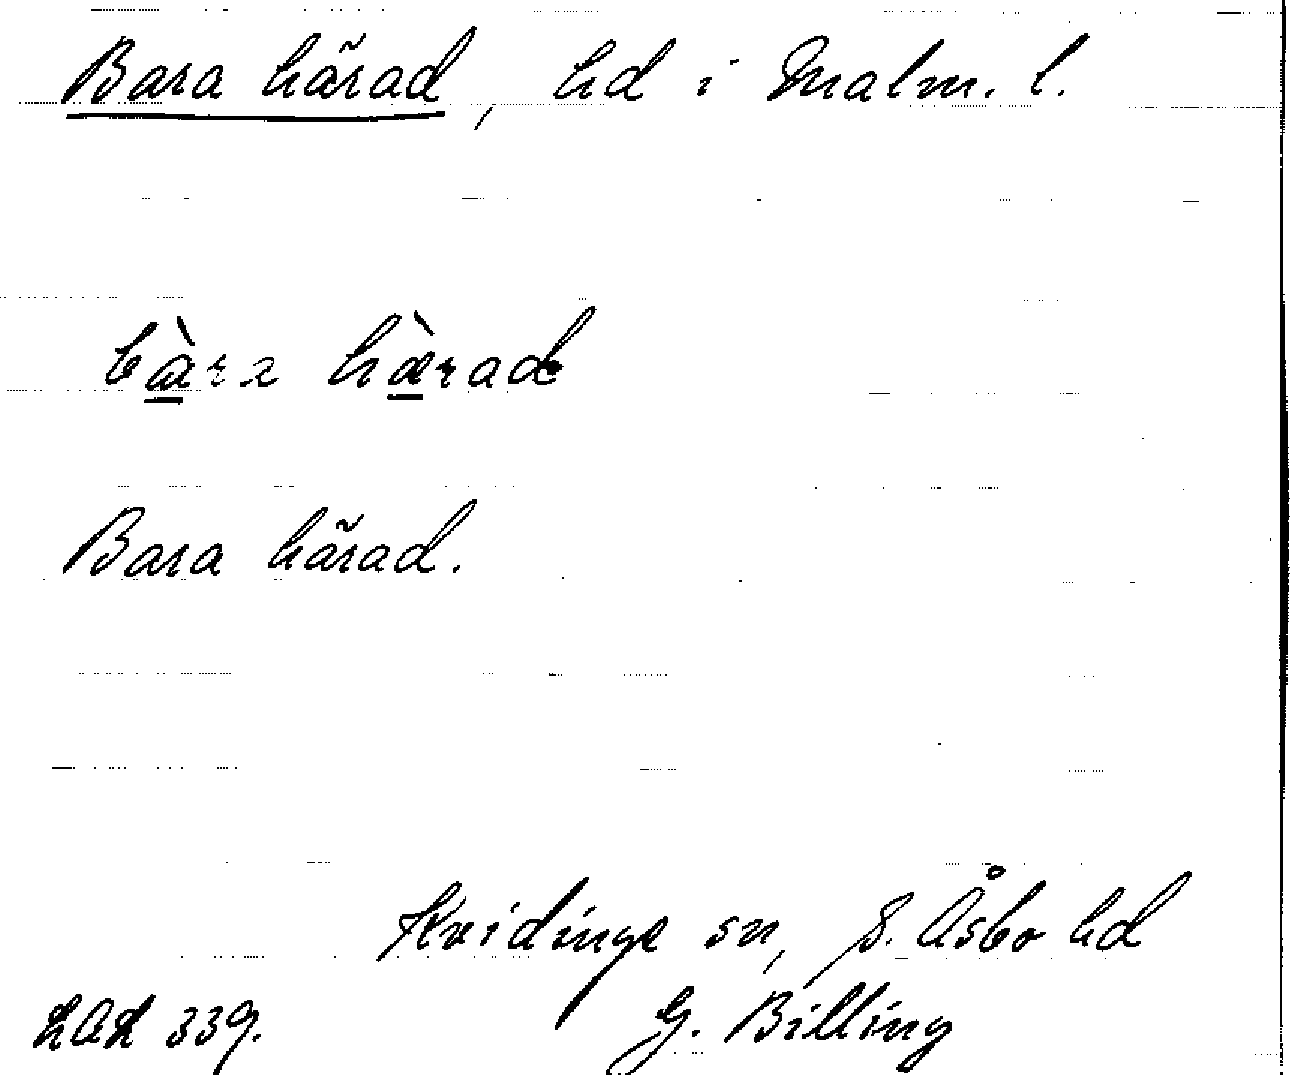 Bara härad, hd i Malm. l.
bàra hàrad
Bara härad.
Kvidinge sn, S. Åsbo hd
LAL 339. G. Billing